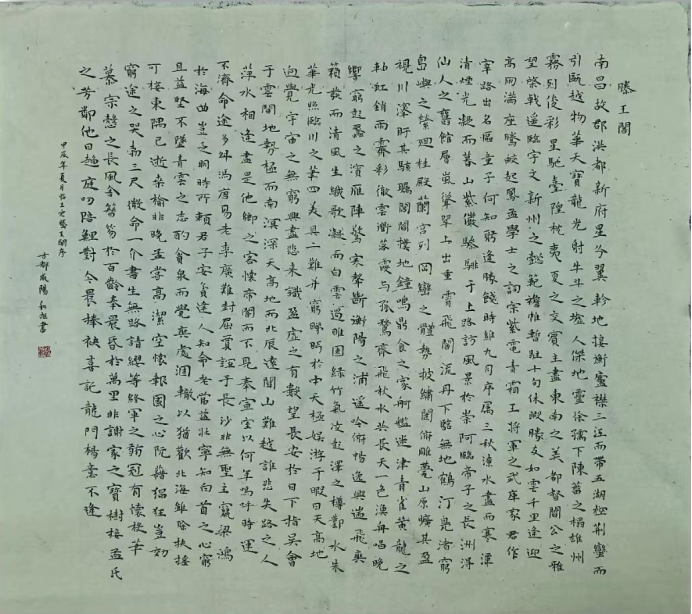 滕王閣
南昌故郡洪都新府星分翼軫地接衡廬襟三江而帶五湖控荆蠻而
引甌越物華天寶龍光射牛斗之墟人傑地靈徐孺下陳蕃之榻雄州
霧列俊彩星馳臺隍枕夷夏之交賓主盡東南之美都督閻公之雅
望棨戟遥臨宇文新州之懿範襜帷暫駐十旬休暇勝友如雲千里逢迎
高朋满座騰蛟起鳳孟學士之詞宗紫電青霜王將軍之武庫家君作
宰路出名區童子何知躬逢勝餞時維九月序属三秋潦水盡而寒潭
清煙光凝而暮山紫儼驂騑于上路訪風景於崇阿臨帝子之長洲得
仙人之舊館層巒聳翠上出重霄飛閣流丹下臨無地鶴汀凫渚窮
島嶼之縈迴桂殿蘭宫列岡巒之體勢披繡闥俯雕甍山原曠其盈
視川澤盱其駭矚閭閻撲地鐘鳴鼎食之家舸艦迷津青雀黄龍之
舳虹銷雨霽彩徹雲衢落霞與孤鶩齊飛秋水共長天一色漁舟唱晚
響窮彭蠡之濱雁陣驚寒聲斷衡陽之浦遥吟俯暢逸興遄飛爽
籟發而清風生纖歌凝而白雲遏睢園緑竹氣凌彭澤之樽鄴水朱
華光照臨川之筆四美具二難并窮睇眄於中天極娱游于暇日天高地
迥覺宇宙之無窮興盡悲来識盈虚之有數望長安於日下指吴會
于雲間地勢極而南溟深天高地而北辰遠關山難越誰悲失路之人
萍水相逢盡是他鄉之客懷帝閽而不見奉宣室以何年嗚呼時運
不濟命途多舛馮唐易老李廣難封屈賈誼于長沙非無聖主竄梁鴻
於海曲豈乏明時所頼君子安貧達人知命老當益壯寧知白首之心窮
且益堅不墜青雲之志酌貪泉而覺爽處涸轍以猶歡北海雖賒扶摇
可接東隅已逝桑榆非晚孟嘗高潔空懷報國之心阮藉猖狂豈効
窮途之哭勃三尺微命一介書生無路請纓等終軍之弱冠有懷投筆
慕宗慤之長風舍簪笏於百齡奉晨昏於萬里非謝家之寶樹接孟氏
之芳鄰他日趨庭叨陪鯉對今晨捧袂喜託龍門楊意不逢
甲辰年夏月書王勃滕王閣序
古都咸陽 書